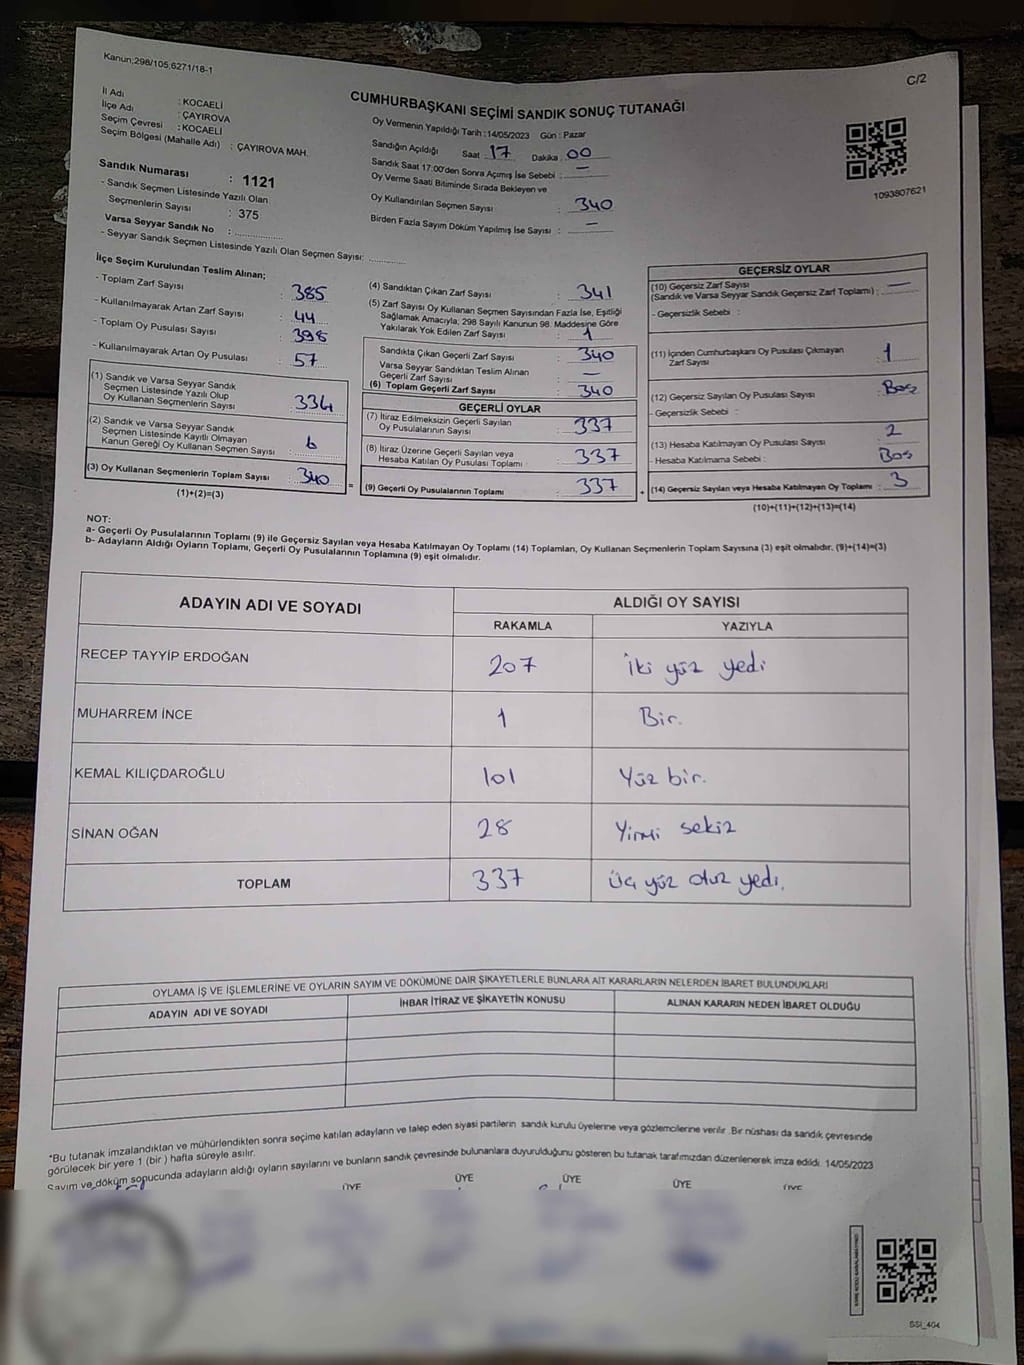 Kanun;298/105,6271/18-1
C/2
CUMHURBAŞKANI SEÇİMİ SANDIK SONUÇ TUTANAĞI
İl Adı : KOCAELİ
İlçe Adı : ÇAYIROVA
Seçim Çevresi : KOCAELİ
Seçim Bölgesi (Mahalle Adı) : ÇAYIROVA MAH.
Sandık Numarası : 1121
- Sandık Seçmen Listesinde Yazılı Olan
Seçmenlerin Sayısı : 375
Varsa Seyyar Sandık No : ..............
- Seyyar Sandık Seçmen Listesinde Yazılı Olan Seçmen Sayısı: ..........
Oy Vermenin Yapıldığı Tarih :14/05/2023 Gün : Pazar
Sandığın Açıldığı Saat 17 Dakika 00
Sandık Saat 17:00'den Sonra Açımış İse Sebebi : —
Oy Verme Saati Bitiminde Sırada Bekleyen ve
Oy Kullandırılan Seçmen Sayısı : 340
Birden Fazla Sayım Döküm Yapılmış İse Sayısı : —
1093807621
İlçe Seçim Kurulundan Teslim Alınan;
- Toplam Zarf Sayısı : 385
- Kullanılmayarak Artan Zarf Sayısı : 44
- Toplam Oy Pusulası Sayısı : 398
- Kullanılmayarak Artan Oy Pusulası : 57
(1) Sandık ve Varsa Seyyar Sandık
Seçmen Listesinde Yazılı Olup
Oy Kullanan Seçmenlerin Sayısı : 334
(2) Sandık ve Varsa Seyyar Sandık
Seçmen Listesinde Kayıtlı Olmayan
Kanun Gereği Oy Kullanan Seçmen Sayısı : 6
(3) Oy Kullanan Seçmenlerin Toplam Sayısı : 340
(1)+(2)=(3)
=
(4) Sandıktan Çıkan Zarf Sayısı : 341
(5) Zarf Sayısı Oy Kullanan Seçmen Sayısından Fazla İse, Eşitliği
Sağlamak Amacıyla; 298 Sayılı Kanunun 98. Maddesine Göre
Yakılarak Yok Edilen Zarf Sayısı : 1
Sandıkta Çıkan Geçerli Zarf Sayısı : 340
Varsa Seyyar Sandıktan Teslim Alınan
Geçerli Zarf Sayısı : —
(6) Toplam Geçerli Zarf Sayısı : 340
GEÇERLİ OYLAR
(7) İtiraz Edilmeksizin Geçerli Sayılan
Oy Pusulalarının Sayısı : 337
(8) İtiraz Üzerine Geçerli Sayılan veya
Hesaba Katılan Oy Pusulası Toplamı : 337
(9) Geçerli Oy Pusulalarının Toplamı : 337
+
GEÇERSİZ OYLAR
(10) Geçersiz Zarf Sayısı
(Sandık ve Varsa Seyyar Sandık Geçersiz Zarf Toplamı) : —
- Geçersizlik Sebebi :
(11) İçinden Cumhurbaşkanı Oy Pusulası Çıkmayan
Zarf Sayısı : 1
(12) Geçersiz Sayılan Oy Pusulası Sayısı : Boş
- Geçersizlik Sebebi :
(13) Hesaba Katılmayan Oy Pusulası Sayısı : 2
- Hesaba Katılmama Sebebi : Boş
(14) Geçersiz Sayılan veya Hesaba Katılmayan Oy Toplamı : 3
(10)+(11)+(12)+(13)=(14)
NOT:
a- Geçerli Oy Pusulalarının Toplamı (9) ile Geçersiz Sayılan veya Hesaba Katılmayan Oy Toplamı (14) Toplamları, Oy Kullanan Seçmenlerin Toplam Sayısına (3) eşit olmalıdır. (9)+(14)=(3)
b- Adayların Aldığı Oyların Toplamı, Geçerli Oy Pusulalarının Toplamına (9) eşit olmalıdır.
ADAYIN ADI VE SOYADI
ALDIĞI OY SAYISI
RAKAMLA YAZIYLA
RECEP TAYYİP ERDOĞAN 207 İki yüz yedi
MUHARREM İNCE 1 Bir.
KEMAL KILIÇDAROĞLU 101 Yüz bir.
SİNAN OĞAN 28 Yirmi sekiz
TOPLAM 337 Üç yüz otuz yedi.
OYLAMA İŞ VE İŞLEMLERİNE VE OYLARIN SAYIM VE DÖKÜMÜNE DAİR ŞİKAYETLERLE BUNLARA AİT KARARLARIN NELERDEN İBARET BULUNDUKLARI
ADAYIN ADI VE SOYADI İHBAR İTİRAZ VE ŞİKAYETİN KONUSU ALINAN KARARIN NEDEN İBARET OLDUĞU
*Bu tutanak imzalandıktan ve mühürlendikten sonra seçime katılan adayların ve talep eden siyasi partilerin sandık kurulu üyelerine veya gözlemcilerine verilir. Bir nüshası da sandık çevresinde
görülecek bir yere 1 (bir ) hafta süreyle asılır.
Sayım ve döküm sonucunda adayların aldığı oyların sayılarını ve bunların sandık çevresinde bulunanlara duyurulduğunu gösteren bu tutanak tarafımızdan düzenlenerek imza edildi. 14/05/2023
ÜYE ÜYE ÜYE ÜYE ÜYE
SSI_404